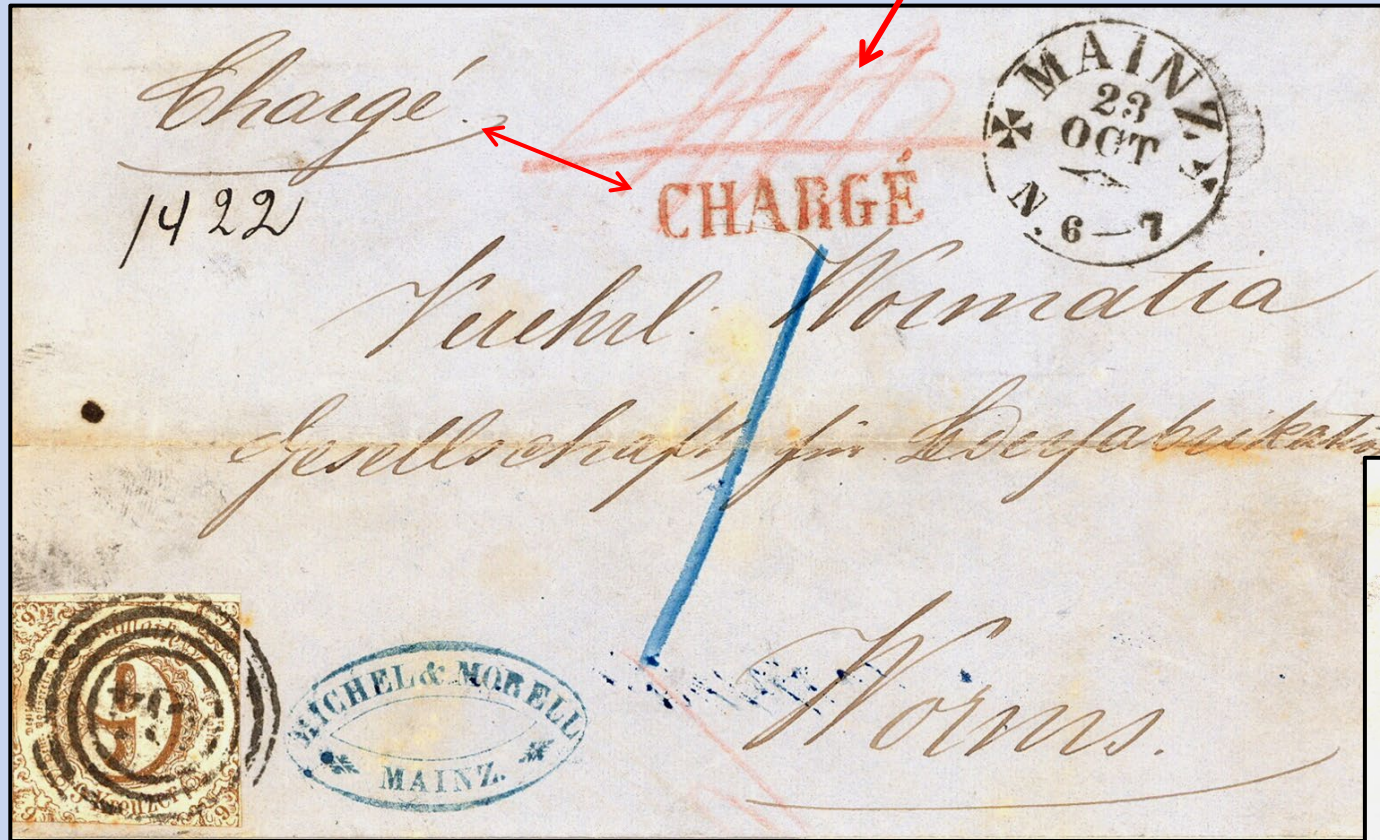 Chargé.
1422
CHARGÉ
MAINZ
23
OCT
N. 6—7
Verehrl. Wormatia
Gesellschaft für Lederfabrikation
Worms.
MICHEL & MORELL
MAINZ.
9
Kreuzer